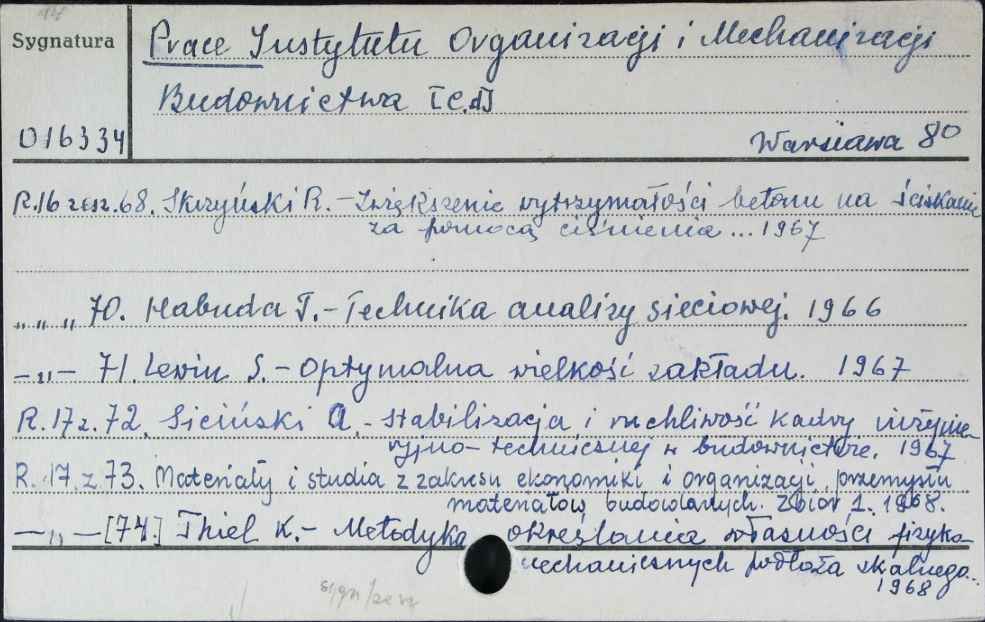 Sygnatura
Prace Instytutu Organizacji i Mechanizacji
Budownictwa [c.d]
016334
Warszawa 80
R.16 zesz.68. Skrzyński R. - Zwiększenie wytrzymałości betonu na ściskanie
za pomocą ciśnienia ... 1967
" " " 70. Habuda T. - Technika analizy sieciowej. 1966
- " - 71. Lewin S. - Optymalna wielkość zakładu. 1967
R. 17 z. 72. Siciński A. - Stabilizacja i ruchliwość kadry inżynie-
ryjno-technicznej w budownictwie. 1967
R. 17. z 73. Materiały i studia z zakresu ekonomiki i organizacji przemysłu
materiałów budowlanych. Zbiór 1. 1968.
- " - [74.] Thiel K. - Metodyka określania własności fizyko-
mechanicznych podłoża skalnego...
1968
sygn/zesz